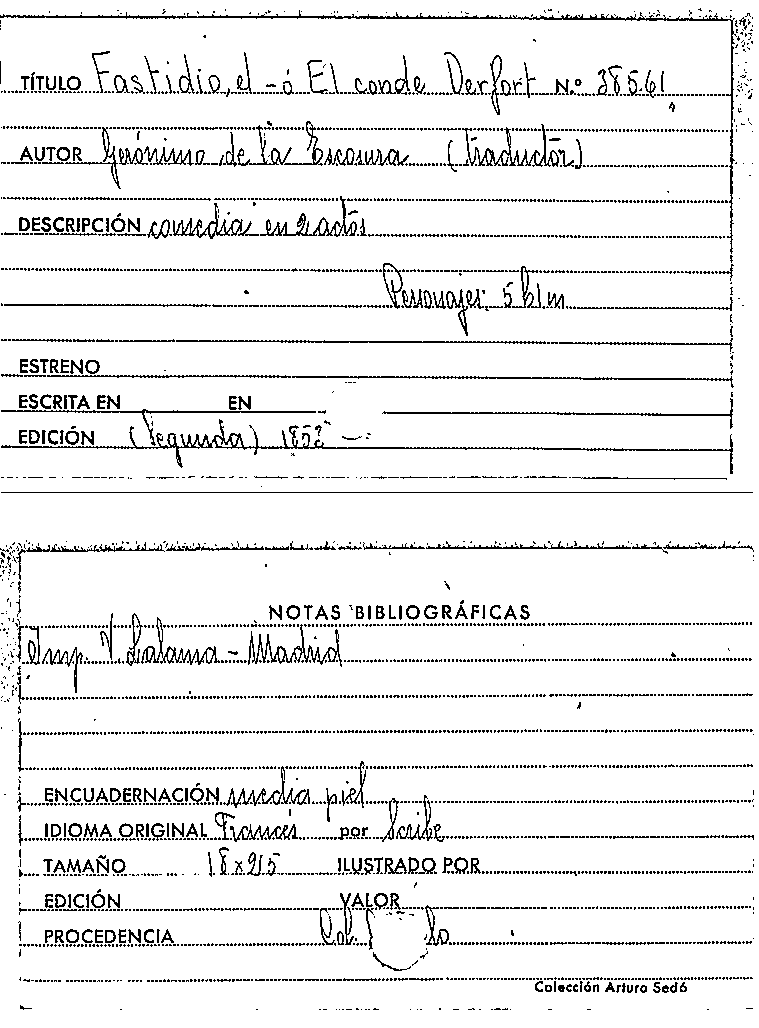 TÍTULO Fastidio, el - ó El conde Derfort N.º 38561
AUTOR Gerónimo de la Escosura (traductor)
DESCRIPCIÓN comedia en 2 actos
Personajes: 5 h 1 m
ESTRENO
ESCRITA EN EN
EDICIÓN (Segunda) 1852
NOTAS BIBLIOGRÁFICAS
Imp. V. Lalama - Madrid
ENCUADERNACIÓN media piel
IDIOMA ORIGINAL Francés por Scribe
TAMAÑO 18 x ILUSTRADO POR
EDICIÓN VALOR
PROCEDENCIA Col.
Colección Arturo Sedó